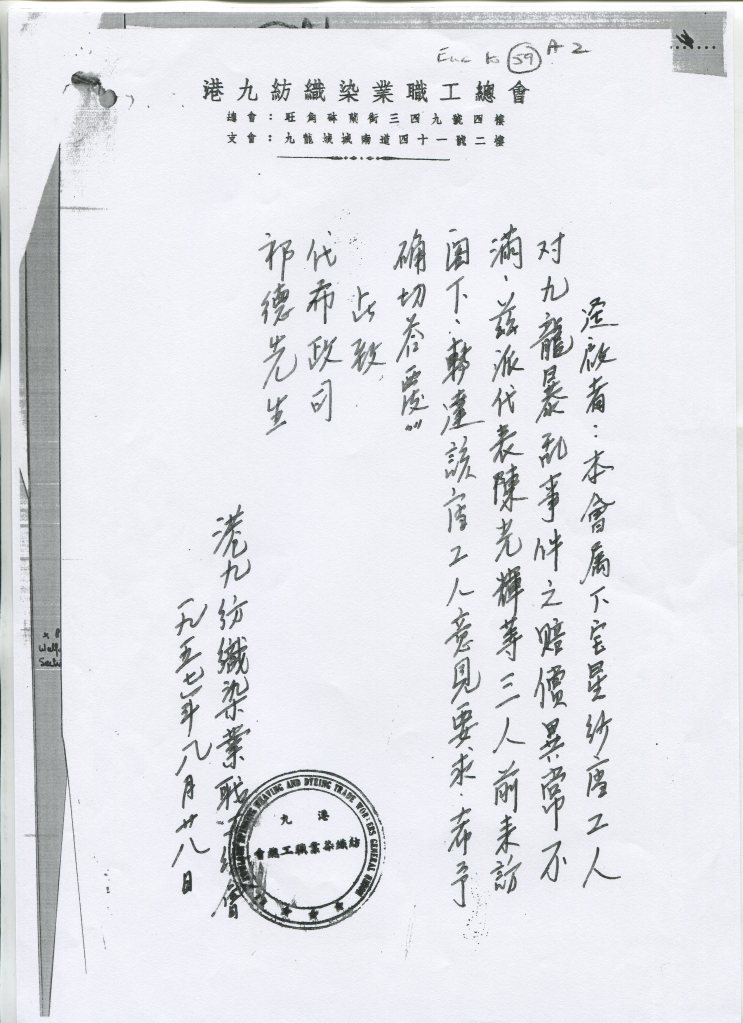 Enc to 59 A 2
港九紡織染業職工總會
總會：旺角砵蘭街三四九號四樓
支會：九龍城城南道四十一號二樓
逕啟者：本會属下宝星纱廠工人
对九龍暴乱事件之賠償異常不
滿，茲派代表陳光輝等三人前来訪
閣下，轉達該廠工人意見要求，希予
确切荅覆。
此致
代布政司
祁德先生
港九紡織染業職工總會
一九五七年八月廿八日
WEAVING AND DYEING TRADE WORKERS GENERAL UNION
港九
紡織染業職工總會